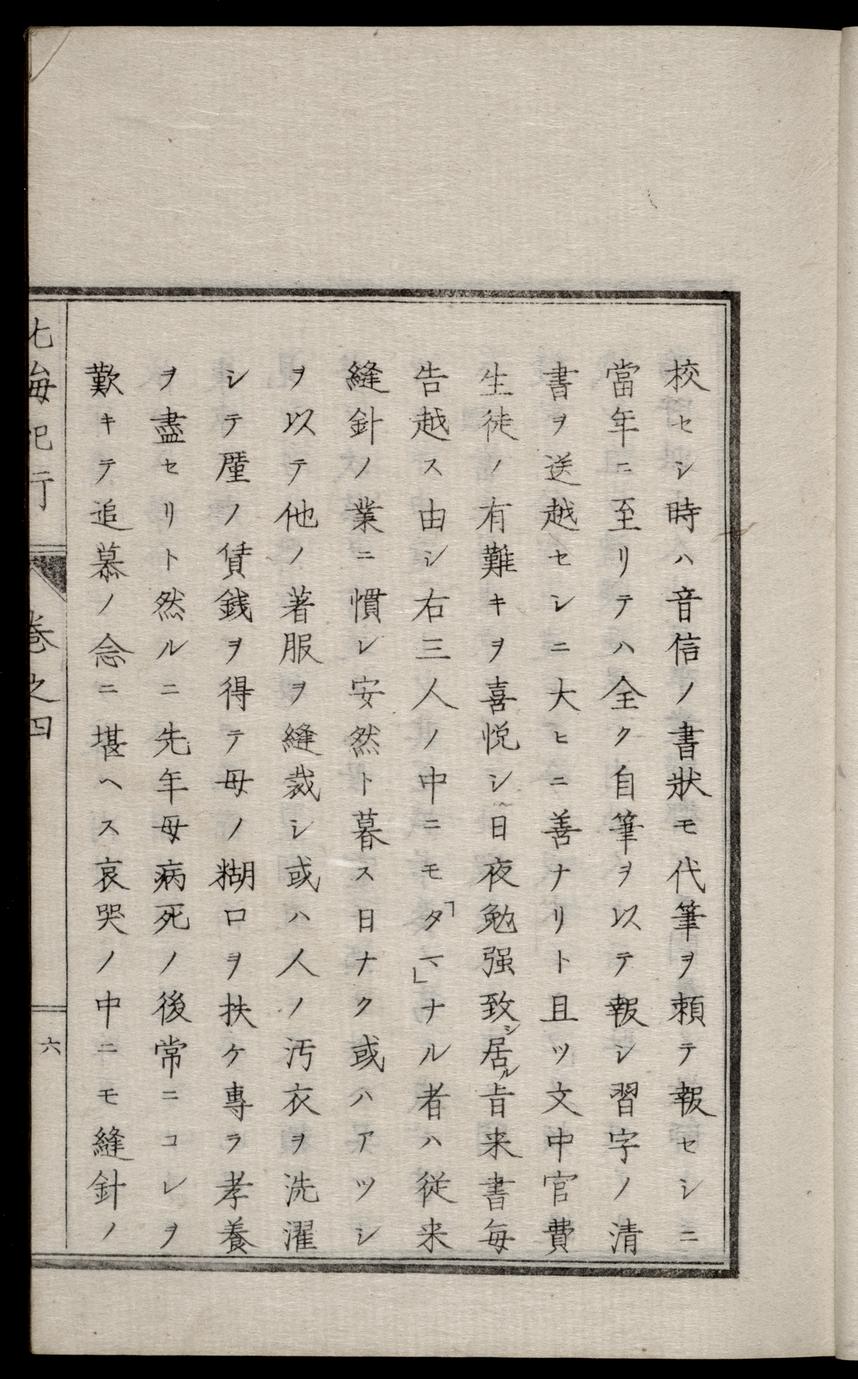 校セシ時ハ音信ノ書狀モ代筆ヲ頼テ報セシニ
當年ニ至リテハ全ク自筆ヲ以テ報シ習字ノ清
書ヲ送越セシニ大ヒニ善ナリト且ツ文中官費
生徒ノ有難キヲ喜悦シ日夜勉强致シ居ル旨来書每
告越ス由シ右三人ノ中ニモ「タマ」ナル者ハ従来
縫針ノ業ニ慣レ安然ト暮ス日ナク或ハアツシ
ヲ以テ他ノ著服ヲ縫裁シ或ハ人ノ汚衣ヲ洗濯
シテ𫝓ノ賃銭ヲ得テ母ノ糊口ヲ扶ケ專ラ孝養
ヲ盡セリト然ルニ先年母病死ノ後常ニコレヲ
歎キテ追慕ノ念ニ堪ヘス哀哭ノ中ニモ縫針ノ
北海紀行
巻之四
六